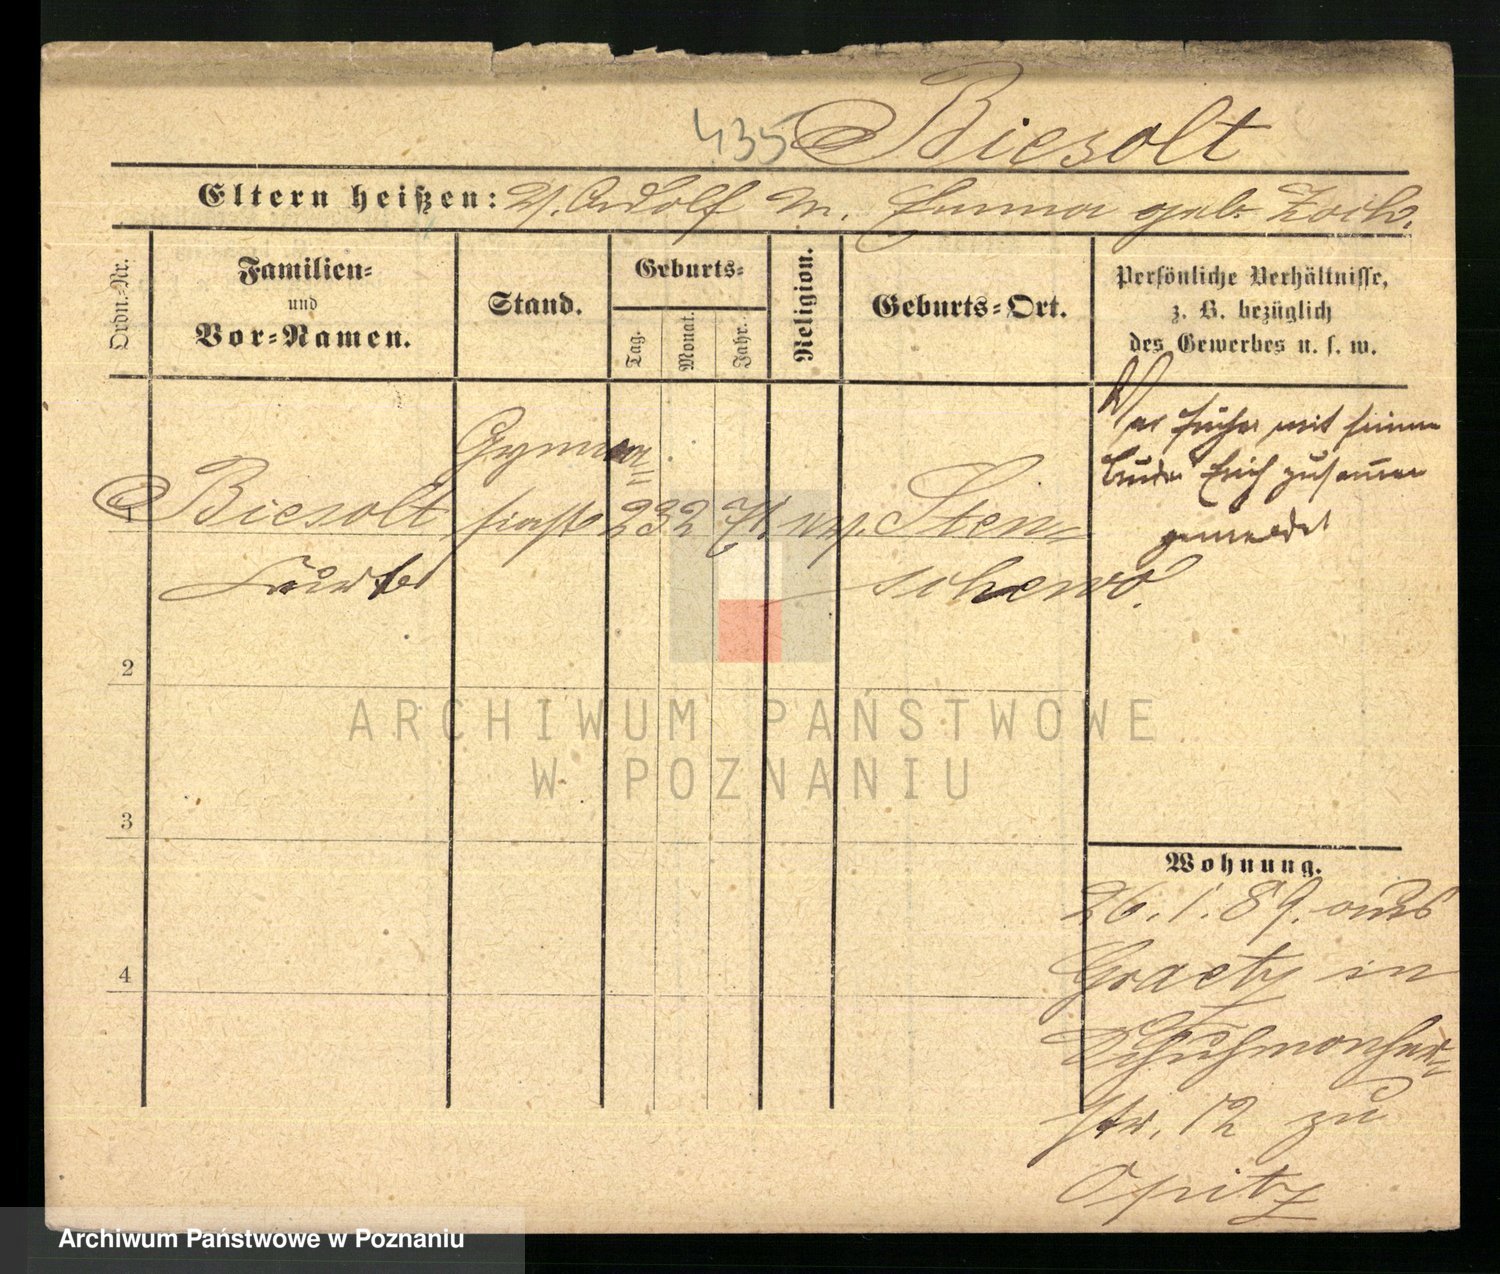 435 Biesolt
Eltern heißen: V. Adolf M. Emma geb.
Ordn.-Nr.
Familien-
und
Vor-Namen.
Stand.
Geburts-
Tag.
Monat.
Jahr.
Religion.
Geburts-Ort.
Persönliche Verhältnisse,
z. B. bezüglich
des Gewerbes u. s. w.
War früher mit seinem
Bruder Erich zusammen
gemeldet
1
Biesolt
Gymna=
siast
23 2 71
ev.
Sten=
schewo.
2
3
4
Wohnung.
26. 1. 89. aus
Graetz in
Schuhmacher=
str. 12 zu
Opitz
ARCHIWUM PAŃSTWOWE
W POZNANIU
Archiwum Państwowe w Poznaniu